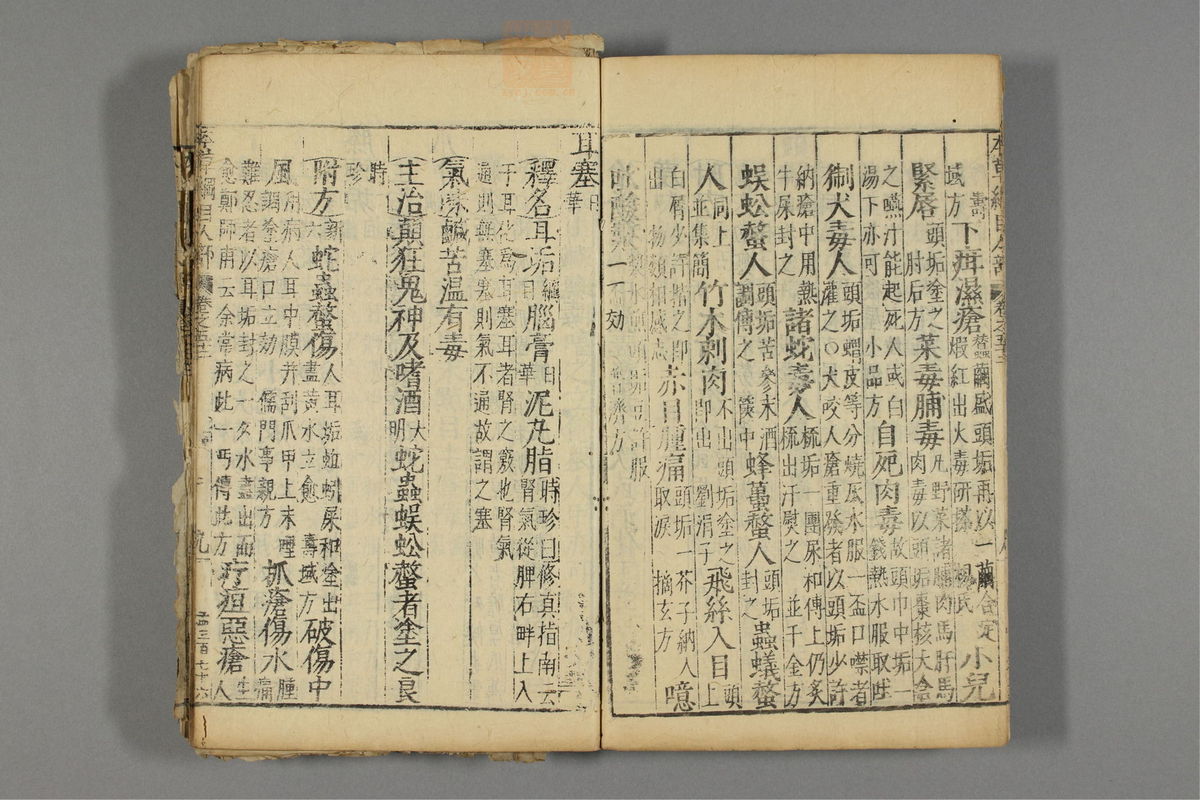 域方壽下疳濕瘡蠶繭盛頭垢再以一繭合定煆紅出火毒研搽楊氏小兒
緊唇頭垢塗之肘后方菜毒脯毒凡野菜諸脯肉馬肝馬肉毒以頭垢棗核大含
之嚥汁能起死人或白湯下亦可小品方自死肉毒故頭巾中垢一錢熱水服取吐
猘犬毒人頭垢猬皮等分燒灰水服一盃口噤者灌之○犬咬人瘡重發者以頭垢少許
納瘡中用熱牛屎封之諸蛇毒人梳垢一團尿和傅上仍炙梳出汗熨之並千金方
蜈蚣螫人頭垢苦參末酒調傅之篋中蜂蠆螫人頭垢封之蟲蟻螫
人同上並集簡竹木刺肉不出頭垢塗之即出劉涓子飛絲入目頭上
白屑少許揩之即出物類相感志赤目腫痛頭垢一芥子納入取淚摘玄方噫
吐酸漿
耳塞日華
釋名耳垢綱目腦膏日華泥丸脂時珍曰修直指南云腎氣從脾右畔上入
于耳化爲耳塞耳者腎之竅也腎氣通則無塞塞則氣不通故謂之塞
氣味鹹苦温有毒
主治顛狂鬼神及嗜酒大明蛇蟲蜈蚣螫者塗之良
時珍
附方新六蛇蟲螫傷人耳垢蚯蚓屎和塗出盡黃水立愈壽域方破傷中
風用病人耳中膜并刮爪甲上末唾調塗瘡口立効儒門事親方抓瘡傷水腫痛
難忍者以耳垢封之一夕水盡出而愈鄭師甫云余常病此一丐傳此方疔疽惡瘡生人
本草綱目人部 卷之五十二